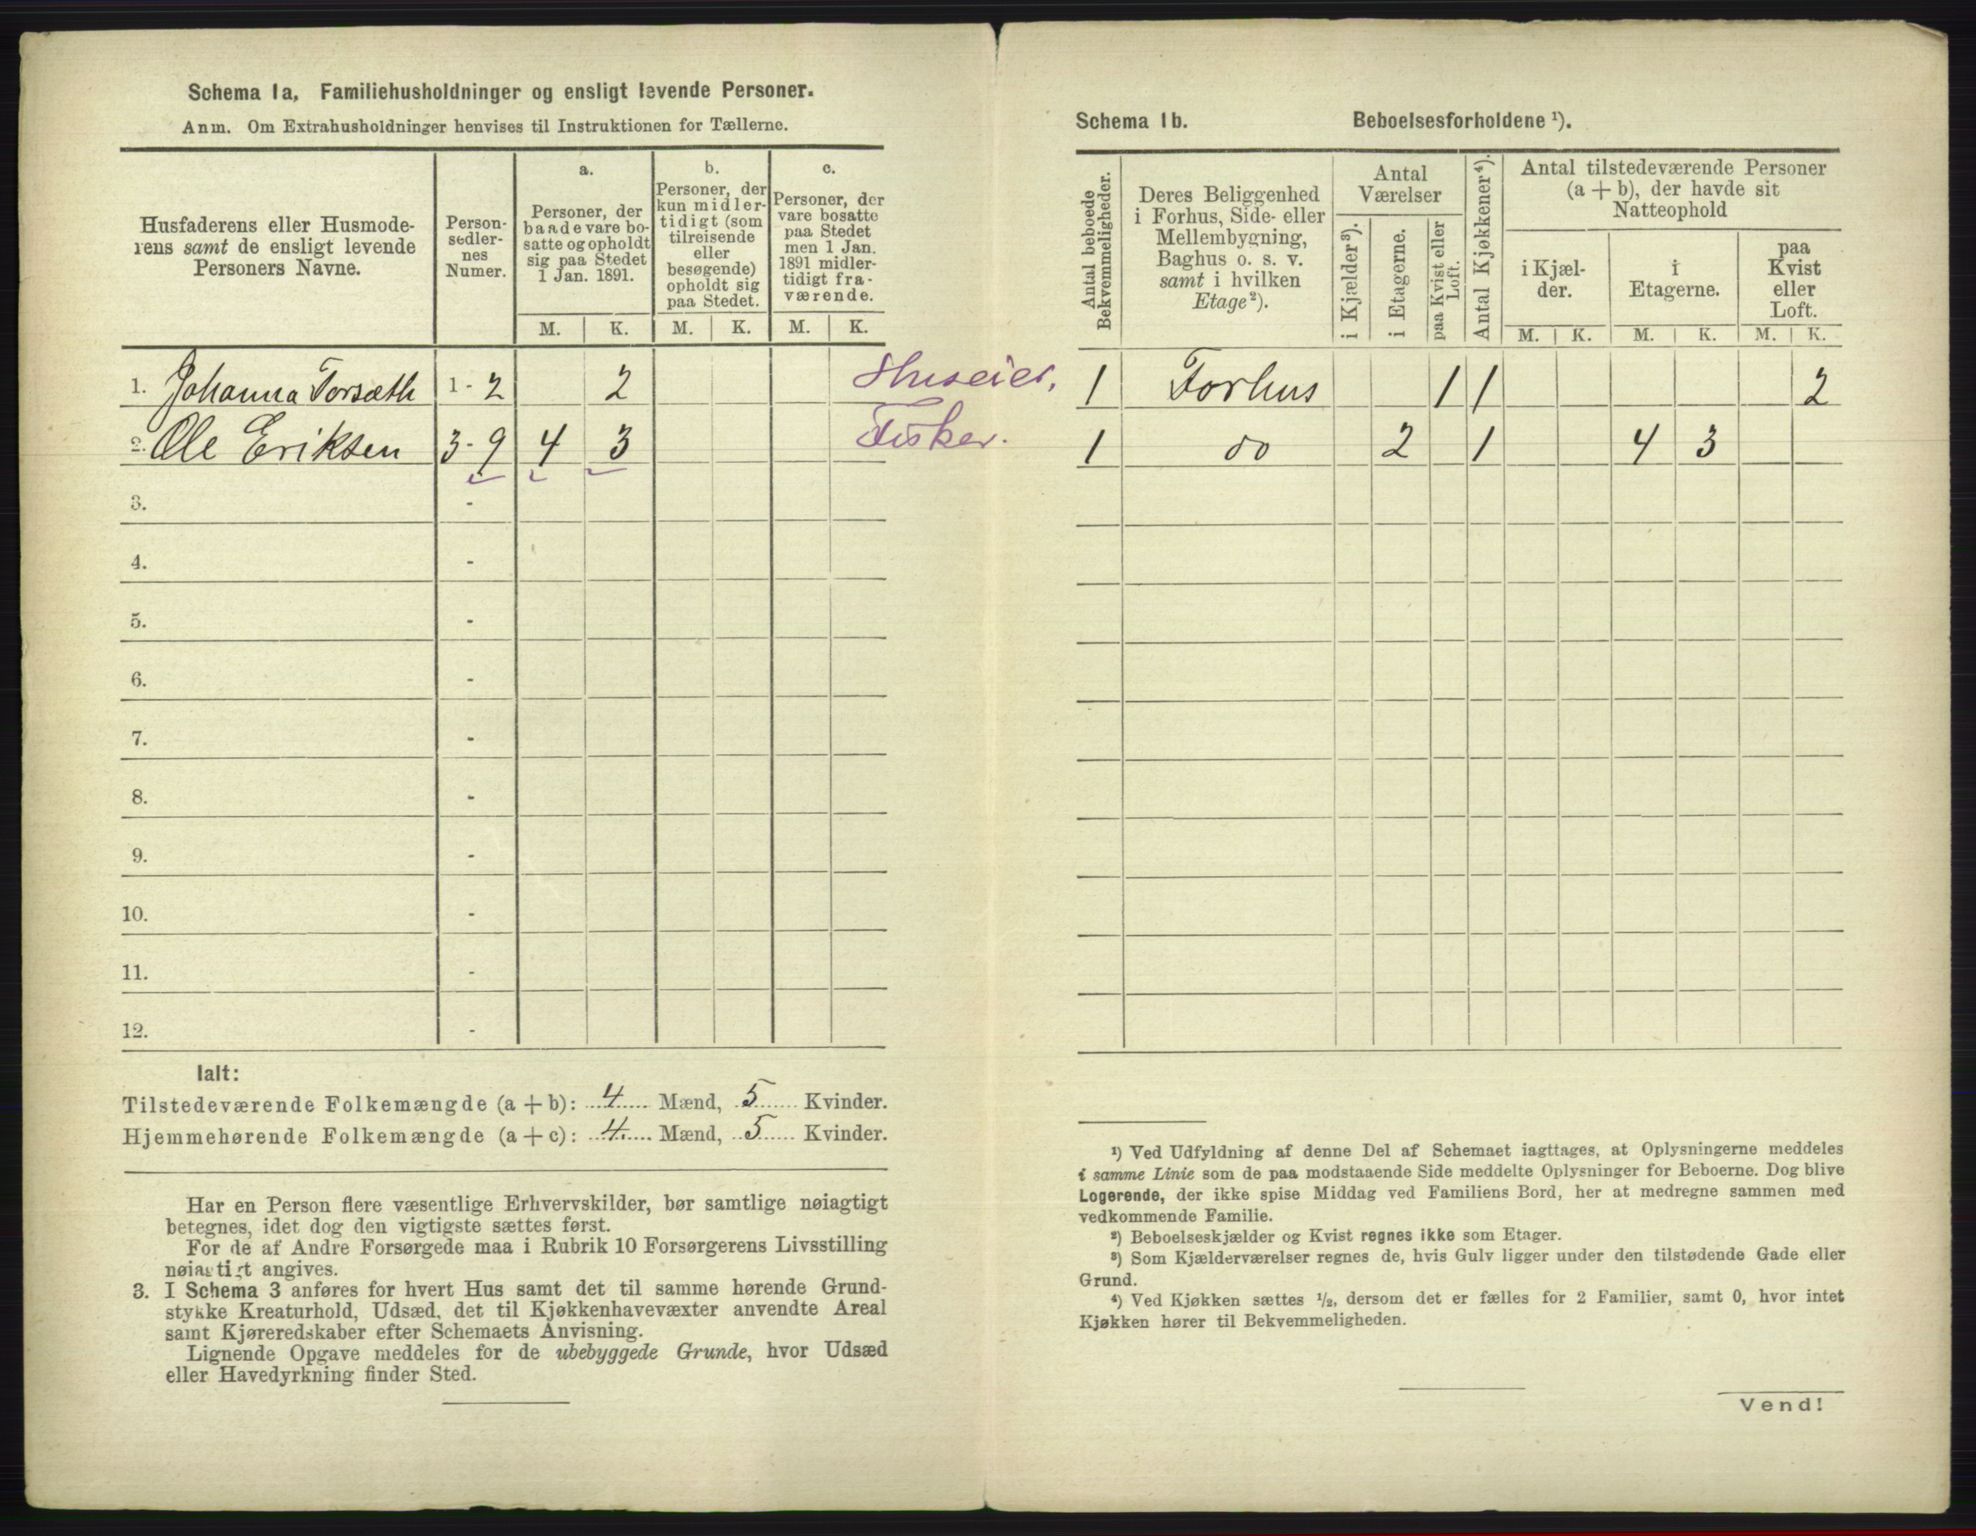 Schema 1a, Familiehusholdninger og ensligt levende Personer.
Anm. Om Extrahusholdninger henvises til Instruktionen for Tællerne.
Husfaderens eller Husmode-
rens samt de ensligt levende
Personers Navne.
Person-
sedler-
nes
Numer.
a.
Personer, der
baade vare bo-
satte og opholdt
sig paa Stedet
1 Jan. 1891.
b.
Personer, der
kun midler-
tidigt (som
tilreisende
eller
besøgende)
opholdt sig
paa Stedet.
c.
Personer, der
vare bosatte
paa Stedet
men 1 Jan.
1891 midler-
tidigt fra-
værende.
M. K. M. K. M. K.
1. Johanna Forsæth 1 - 2 2 Huseier.
2. Ole Eriksen 3 - 9 4 3 Fisker.
3. -
4. -
5. -
6. -
7. -
8. -
9. -
10. -
11. -
12. -
Ialt:
Tilstedeværende Folkemængde (a + b): 4 Mænd, 5 Kvinder.
Hjemmehørende Folkemængde (a + c): 4. Mænd, 5 Kvinder.
Har en Person flere væsentlige Erhvervskilder, bør samtlige nøiagtigt
betegnes, idet dog den vigtigste sættes først.
For de af Andre Forsørgede maa i Rubrik 10 Forsørgerens Livsstilling
nøiagtigt angives.
3. I Schema 3 anføres for hvert Hus samt det til samme hørende Grund-
stykke Kreaturhold, Udsæd, det til Kjøkkenhavevæxter anvendte Areal
samt Kjøreredskaber efter Schemaets Anvisning.
Lignende Opgave meddeles for de ubebyggede Grunde, hvor Udsæd
eller Havedyrkning finder Sted.
Schema 1b. Beboelsesforholdene ¹).
Antal beboede
Bekvemmeligheder.
Deres Beliggenhed
i Forhus, Side- eller
Mellembygning,
Baghus o. s. v.
samt i hvilken
Etage ²).
Antal
Værelser
i Kjælder ³).
i Etagerne.
paa Kvist eller
Loft.
Antal Kjøkkener ⁴).
Antal tilstedeværende Personer
(a + b), der havde sit
Natteophold
i Kjæl-
der.
i
Etagerne.
paa
Kvist
eller
Loft.
M. K. M. K. M. K.
1 Forhus 1 1 2
1 do 2 1 4 3
¹) Ved Udfyldning af denne Del af Schemaet iagttages, at Oplysningerne meddeles
i samme Linie som de paa modstaaende Side meddelte Oplysninger for Beboerne. Dog blive
Logerende, der ikke spise Middag ved Familiens Bord, her at medregne sammen med
vedkommende Familie.
²) Beboelseskjælder og Kvist regnes ikke som Etager.
³) Som Kjælderværelser regnes de, hvis Gulv ligger under den tilstødende Gade eller
Grund.
⁴) Ved Kjøkken sættes ½, dersom det er fælles for 2 Familier, samt 0, hvor intet
Kjøkken hører til Bekvemmeligheden.
Vend!